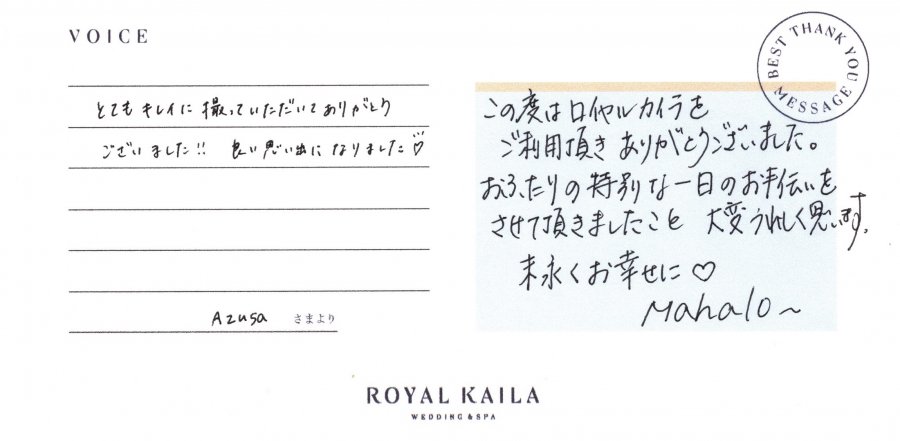 VOICE
とてもキレイに撮っていただいてありがとう
ございました!! 良い思い出になりました♡
Azusa さまより
BEST THANK YOU MESSAGE
この度はロイヤルカイラを
ご利用頂きありがとうございました。
おふたりの特別な一日のお手伝いを
させて頂きましたこと 大変うれしく思います。
末永くお幸せに♡
Mahalo~
ROYAL KAILA
WEDDING & SPA